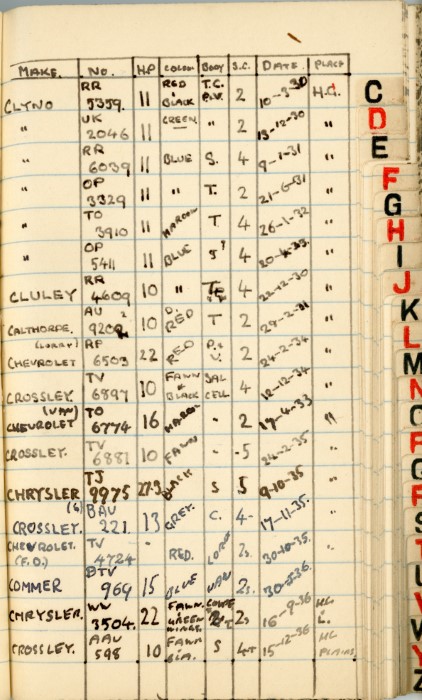 MAKE. No. HP COLOUR BODY S.C. DATE. PLACE
CLYNO RR 5359. 11 RED & BLACK T.C. 2 10-3-30 H.G.
" UK 2046 11 GREEN " 2 13-12-30 "
" RR 6039 11 BLUE S. 4 9-1-31 "
" OP 3329 11 " T. 2 21-6-31 "
" TO 3910 11 MAROON T 4 26-1-32 "
" OP 5411 11 BLUE 4 "
CLULEY RR 4609 10 " 4 22-12-30 "
CALTHORPE. AU 10 D. RED T 2 "
(LORRY) CHEVROLET RR 6503 22 RED 2 24-2-34 "
CROSSLEY. TV 6897 10 FAWN & BLACK SAL 4 12-12-34 "
(VAN) CHEVROLET TO 6774 16 MAROON " 2 17-4-33 "
CROSSLEY. TV 6881 10 FAWN " 5 24-2-35 "
CHRYSLER TJ 9975 27.3 BLACK S 5 9-10-35 "
CROSSLEY. BAU 221. 13 GREY. C. 4- 17-11-35. "
CHEVROLET. (F.O.) TV 4724 - RED. 2s 30-10-35. "
COMMER BTV 969 15 BLUE VAN 2s. 30-5-36. "
CHRYSLER. 3504. 22 FAWN GREEN WINGS. COUPE 16-9-36
CROSSLEY. AAU 598 10 FAWN S 15-12-36 PLAINS
C
D
E
F
G
H
I
J
K
L
M
N
O
P
Q
R
S
T
U
V
W
Y
Z